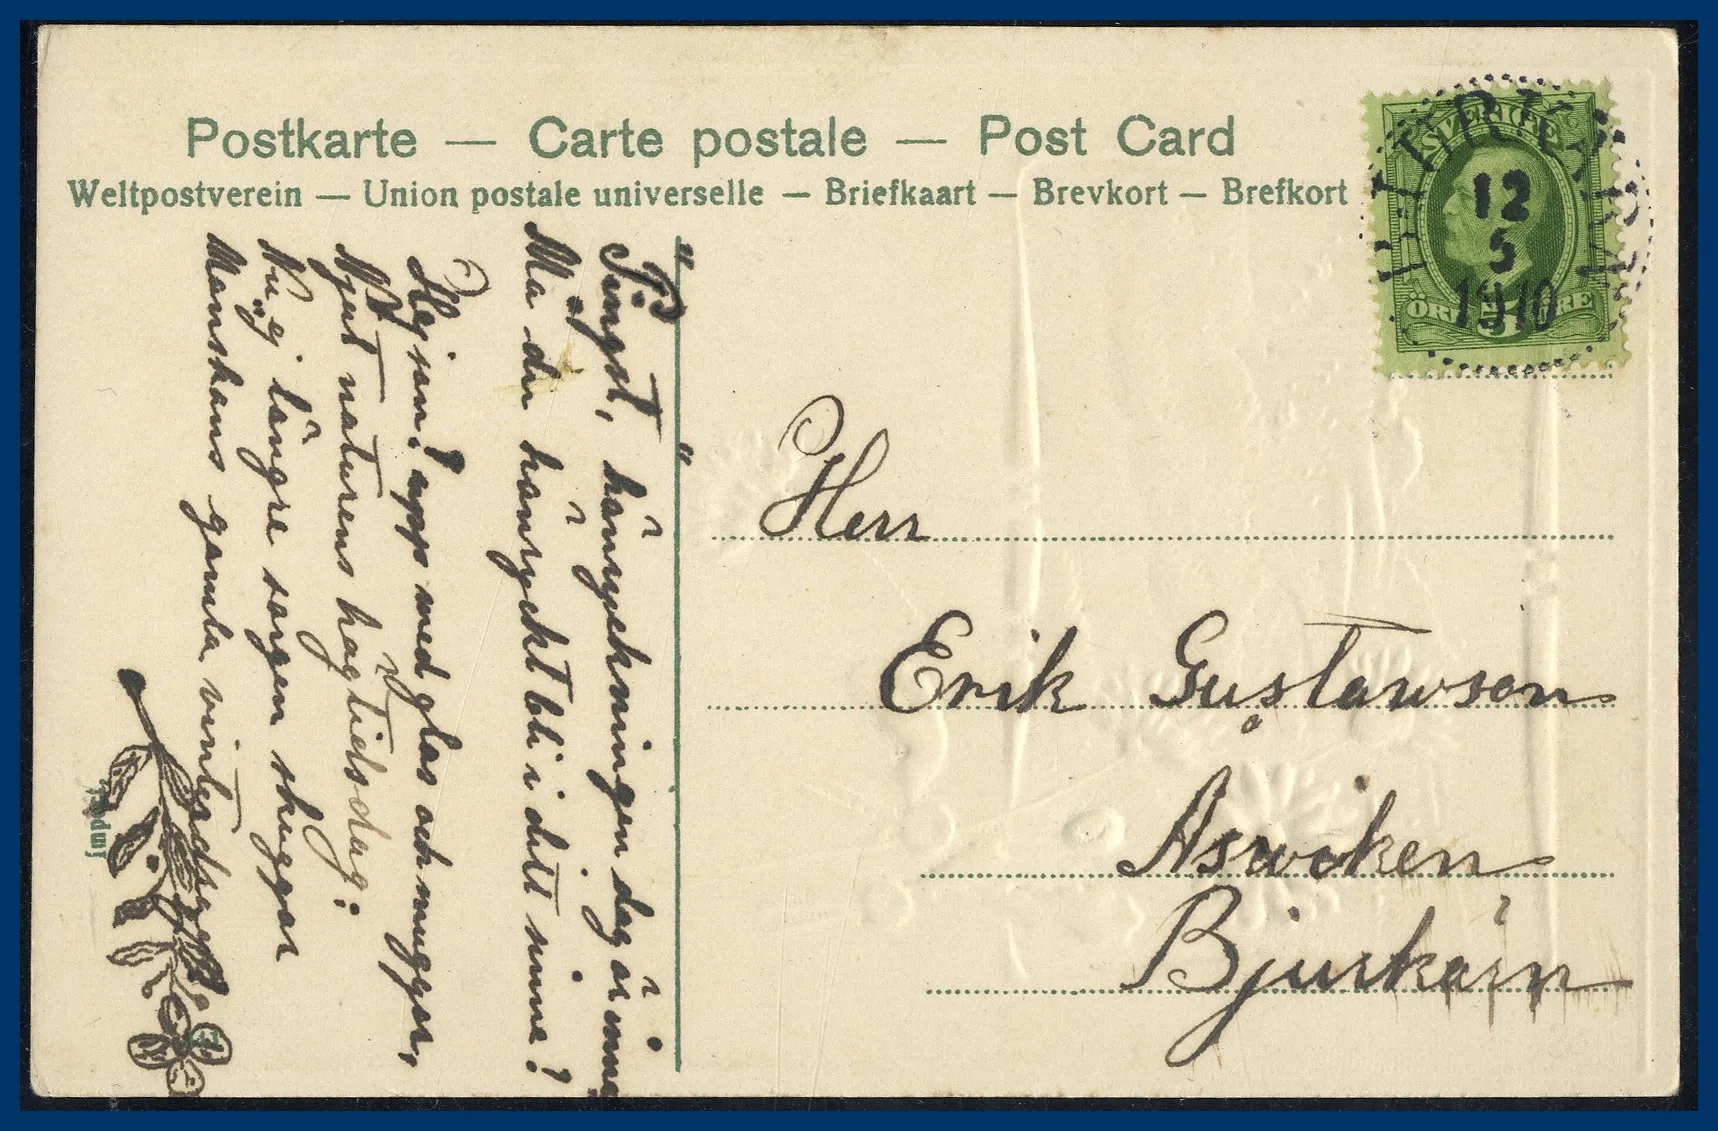 Postkarte — Carte postale — Post Card
Weltpostverein — Union postale universelle — Briefkaart — Brevkort — Brefkort
SVERIGE
ÖRE 5 ÖRE
BJURKÄRN
12
5
1910
"Pingst, hänryckningen dag är inne"
Må du hänryckt bli i ditt sinne!
Hejsan! upp med glas och muggar,
Njut naturens högtidsdag:
Nu ej längre sorgen skuggar
Mänskans gamla vinter
Herr
Erik Gustawson
Aswiken
Bjurkärn